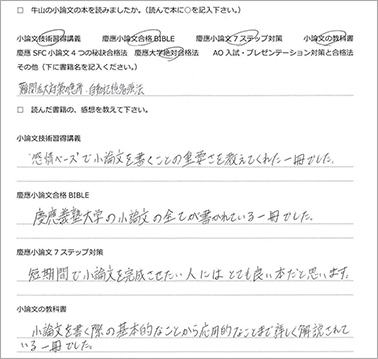 □ 牛山の小論文の本を読みましたか。（読んで本に○を記入下さい。）
小論文技術習得講義　慶應小論文合格 BIBLE　慶應小論文 7 ステップ対策　小論文の教科書
慶應 SFC 小論文 4 つの秘訣合格法　慶應大学絶対合格法　AO 入試・プレゼンテーション対策と合格法
その他（下に書籍名を記入ください。）
難関大対策の
□ 読んだ書籍の、感想を教えて下さい。
小論文技術習得講義
"感情ベース"で小論文を書くことの重要さを教えてくれた一冊でした。
慶應小論文合格 BIBLE
慶應義塾大学の小論文の全てが書かれている一冊でした。
慶應小論文 7 ステップ対策
短期間で小論文を完成させたい人にはとても良い本だと思います。
小論文の教科書
小論文を書く際の基本的なことから応用的なことまで詳しく解説されて
いる一冊でした。